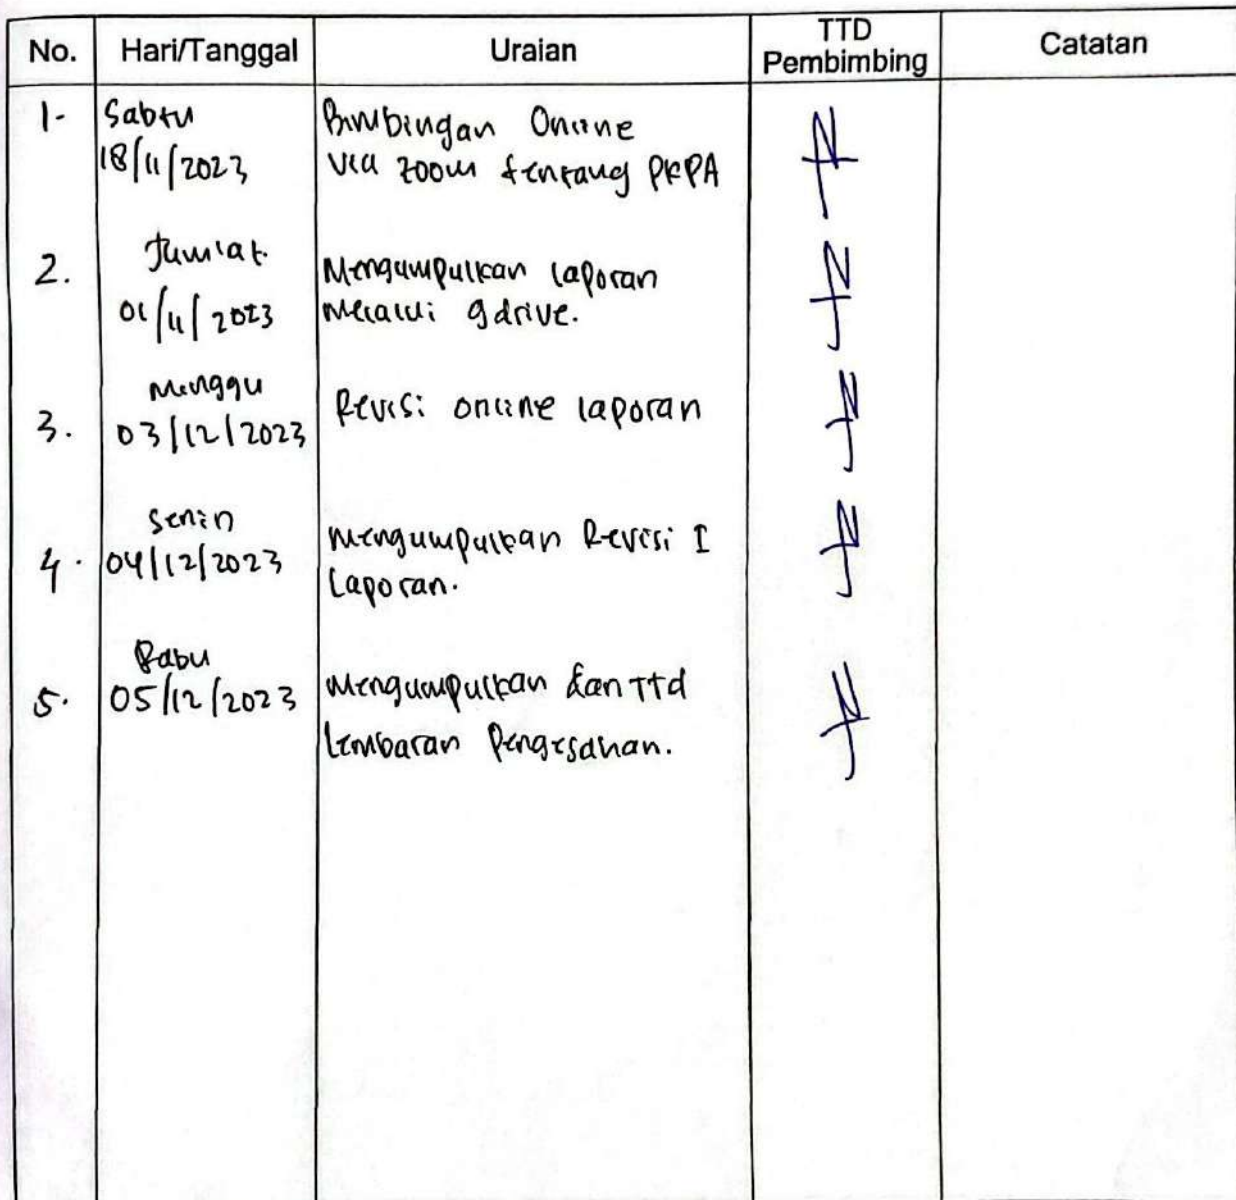 No. Hari/Tanggal Uraian TTD Pembimbing Catatan
1. Sabtu
18/11/2023
Bimbingan Online
via zoom tentang PKPA
2. Jum'at
01/11/2023
Mengumpulkan laporan
melalui gdrive.
3. Minggu
03/12/2023
Revisi online laporan
4. Senin
04/12/2023
mengumpulkan Revisi I
Laporan.
5. Rabu
05/12/2023
Mengumpulkan dan ttd
lembaran Pengesahan.